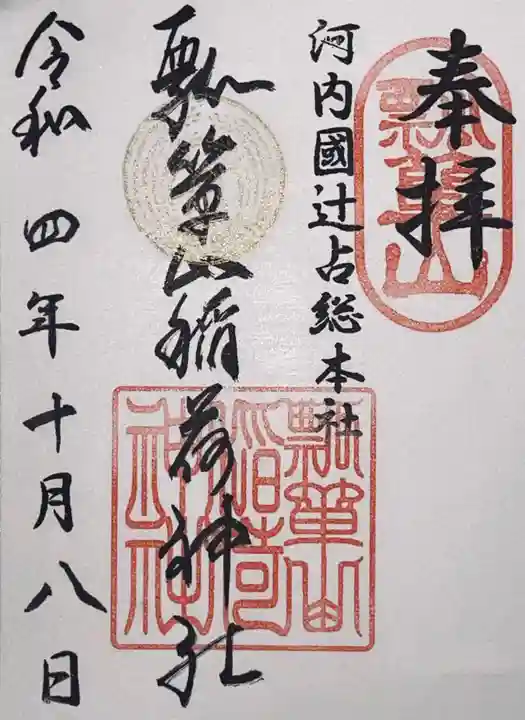 奉拝
瓢箪山
河内國辻占総本社
瓢箪山稲荷神社
瓢箪山
稲荷
神社
令和四年十月八日